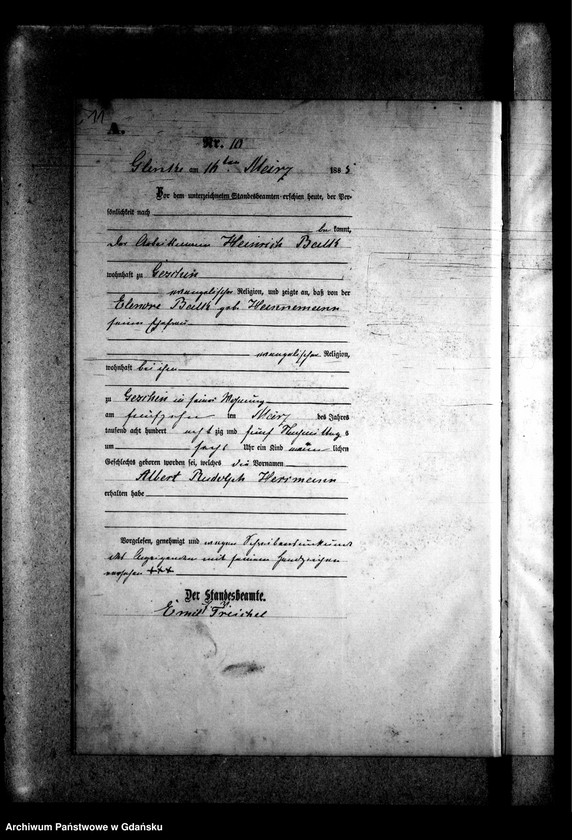 11
A.
Nr. 10
am 16ten März 1885
Vor dem unterzeichneten Standesbeamten erschien heute, der Per-
sönlichkeit nach
be kannt,
der Arbeitsmann Heinrich
wohnhaft zu
evangelischer Religion, und zeigte an, daß von der
geb. Heinnemann
seiner Ehefrau
evangelischer Religion,
wohnhaft bei ihm
zu in seiner Wohnung
am fünfzehn ten März des Jahres
tausend acht hundert acht zig und fünf Nachmittags
um sechs Uhr ein Kind männ lichen
Geschlechts geboren worden sei, welches die Vornamen
Albert Rudolph Herrmann
erhalten habe
Vorgelesen, genehmigt und wegen Schreibensunkunde
des Anzeigenden mit seinem Handzeichen
versehen +++
Der Standesbeamte.
Archiwum Państwowe w Gdańsku